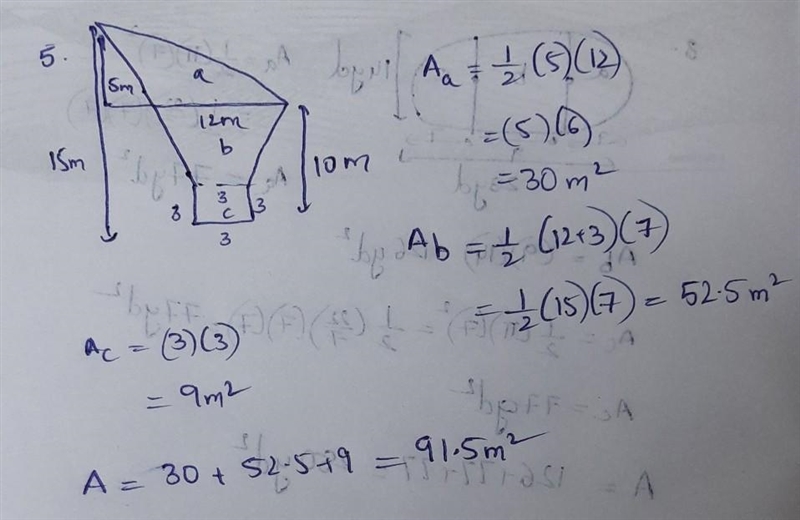 5.
a
5m
12m
b
15m
10m
3
3
c
3
3
A_a = 1/2 (5)(12)
= (5)(6)
= 30 m²
A_b = 1/2 (12+3)(7)
= 1/2 (15)(7) = 52.5 m²
A_c = (3)(3)
= 9m²
A = 30 + 52.5 + 9 = 91.5m²